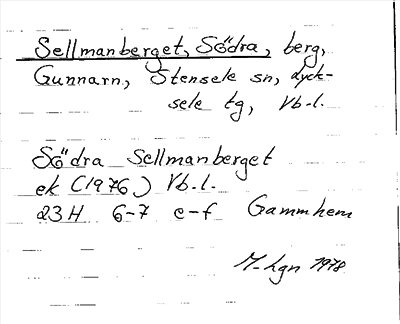 Sellmanberget, Södra, berg,
Gunnarn, Stensele sn, Lyck-
sele tg, Vb.l.
Södra Sellmanberget
ek (1976) Vb.l.
23H 6-7 e-f Gammhem
M-Lgn 1978